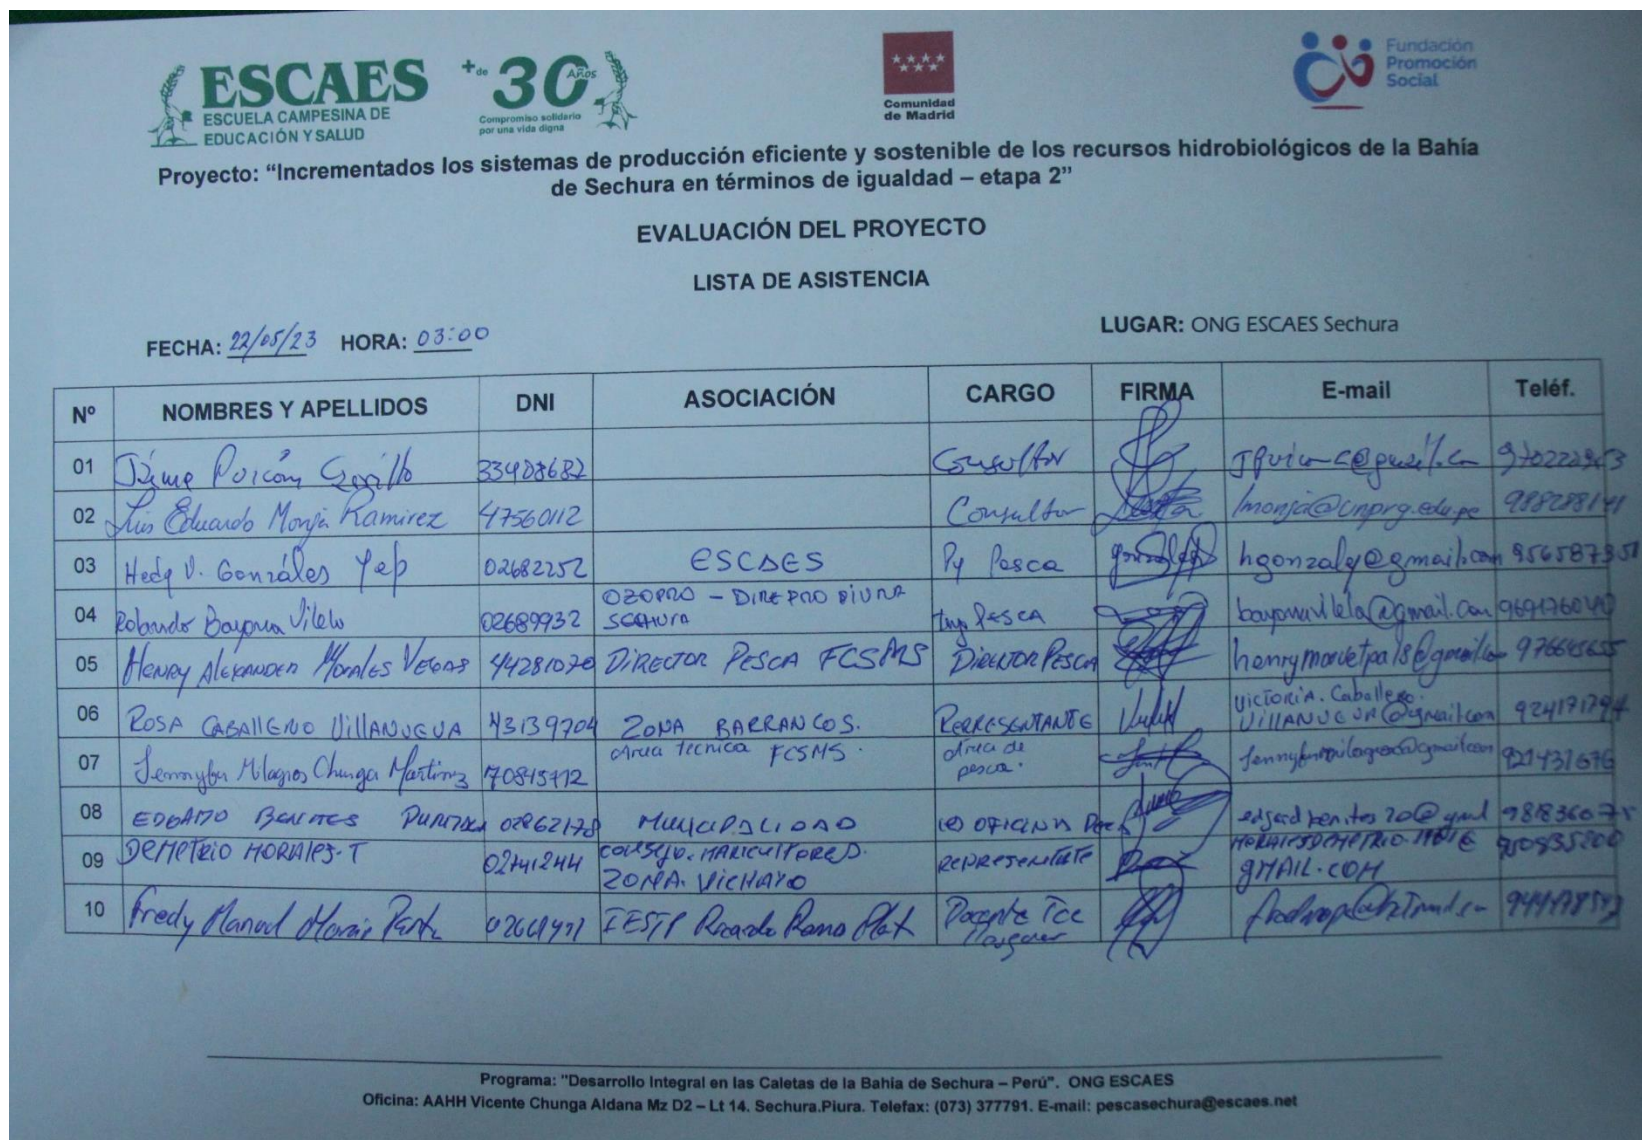 ESCAES
ESCUELA CAMPESINA DE
EDUCACIÓN Y SALUD
+de 30 Años
Compromiso solidario
por una vida digna
Comunidad
de Madrid
Fundación
Promoción
Social
Proyecto: “Incrementados los sistemas de producción eficiente y sostenible de los recursos hidrobiológicos de la Bahía
de Sechura en términos de igualdad – etapa 2”
EVALUACIÓN DEL PROYECTO
LISTA DE ASISTENCIA
FECHA: 22/05/23 HORA: 03:00 LUGAR: ONG ESCAES Sechura
Nº NOMBRES Y APELLIDOS DNI ASOCIACIÓN CARGO FIRMA E-mail Teléf.
01 Consultor
02 Luis Eduardo Monja Ramirez 47560112 Consultor lmonja@unprg.edu.pe
03 Hedy V. Gonzáles Yep 02682252 ESCAES Py Pesca hgonzaly@gmail.com
04 Rolando Bayona Vilela 02689932 OZOPRO - DIREPRO PIURA
SECHURA Ing PESCA bayonavilela@gmail.com
05 HENRY ALEXANDER MORALES VEGAS 44281070 DIRECTOR PESCA FCSMS DIRECTOR PESCA
06 ROSA CABALLERO VILLANUEVA 43139704 ZONA BARRANCOS. REPRESENTANTE VICTORIA.Caballero.
VILLANUEVA@gmail.com 924171794
07 Jennyfer Milagros Chunga Martinez 70845712 Area tecnica FCSMS. área de
pesca.
08 EDGARDO BENITES 02862178 MUNICIPALIDAD (e) OFICINA
09 DEMETRIO MORALES.T 02741244 CONSEJO. MARICULTORES.
ZONA. VICHAYO REPRESENTANTE
GMAIL.COM
10 Fredy Manuel IESTP Ricardo Ramos Plata Docente
Programa: "Desarrollo Integral en las Caletas de la Bahía de Sechura – Perú". ONG ESCAES
Oficina: AAHH Vicente Chunga Aldana Mz D2 – Lt 14. Sechura.Piura. Telefax: (073) 377791. E-mail: pescasechura@escaes.net